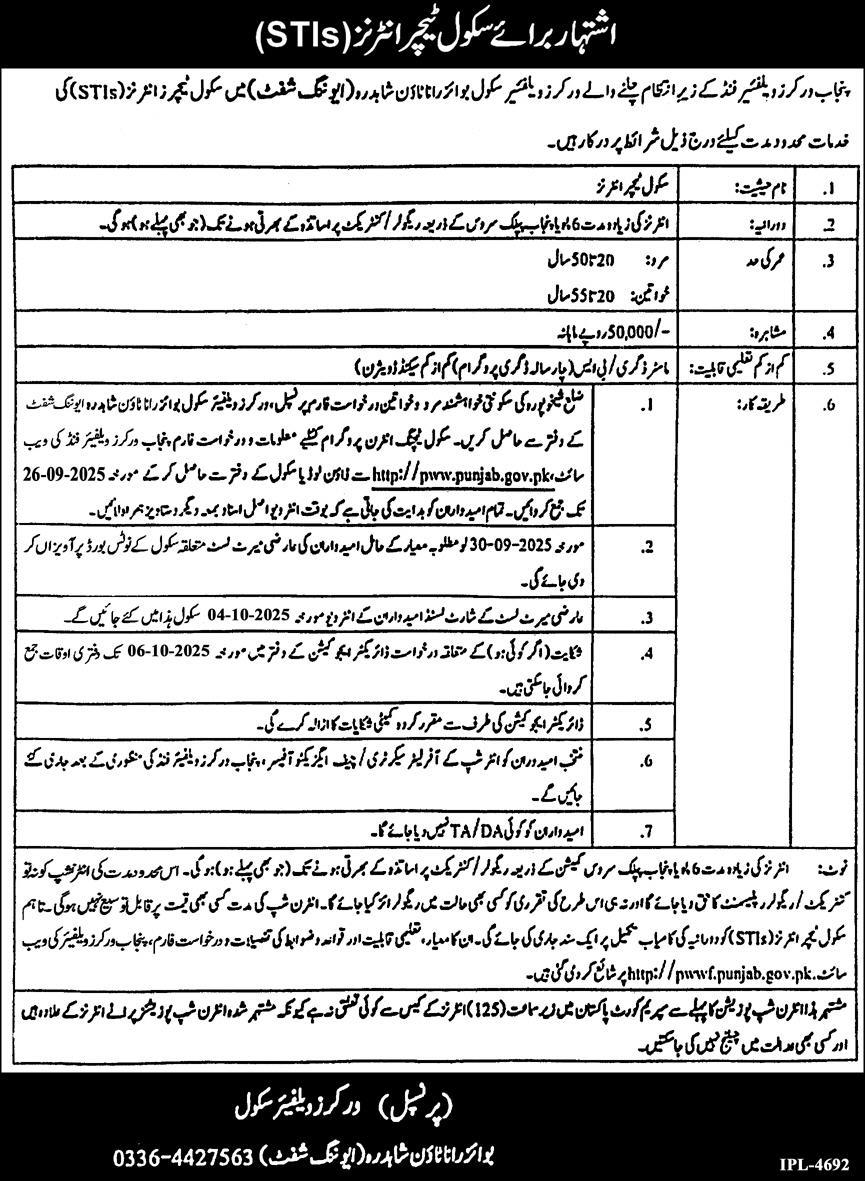 اشتہار برائے سکول ٹیچر انٹرنز (STIs)
پنجاب ورکرز ویلفیئر فنڈ کے زیر انتظام چلنے والے ورکرز ویلفیئر سکول بوائز رانا ٹاؤن شاہدرہ (ایوننگ شفٹ) میں سکول ٹیچرز انٹرنز (STIs) کی
خدمات محدود مدت کیلئے درج ذیل شرائط پر درکار ہیں۔
1. نام حیثیت: سکول ٹیچر انٹرنز
2. دورانیہ: انٹرنز کی زیادہ مدت 6 ماہ یا پنجاب پبلک سروس کے ذریعہ ریگولر/کنٹریکٹ پر اساتذہ کے بھرتی ہونے تک (جو بھی پہلے ہو) ہوگی۔
3. عمر کی حد مرد: 20 تا 50 سال
خواتین: 20 تا 55 سال
4. مشاہرہ: 50,000/- روپے ماہانہ
5. کم از کم تعلیمی قابلیت: ماسٹر ڈگری/بی ایس (چار سالہ ڈگری پروگرام) کم از کم سیکنڈ ڈویژن)
6. طریقہ کار: 1. ضلع شیخوپورہ کی سکونتی خواہشمند مرد و خواتین درخواست فارم پرنسپل، ورکرز ویلفیئر سکول بوائز رانا ٹاؤن شاہدرہ ایوننگ شفٹ
کے دفتر سے حاصل کریں۔ سکول ٹیچنگ انٹرن پروگرام کیلئے معلومات و درخواست فارم پنجاب ورکرز ویلفیئر فنڈ کی ویب
سائٹ http://pww.punjab.gov.pk سے ڈاؤن لوڈ یا سکول کے دفتر سے حاصل کر کے مورخہ 26-09-2025
تک جمع کروائیں۔ تمام امیدواران کو ہدایت کی جاتی ہے کہ بوقت انٹرویو اصل اسناد بمعہ دیگر دستاویز ہمراہ لائیں۔
2. مورخہ 30-09-2025 کو مطلوبہ معیار کے حامل امیدواران کی عارضی میرٹ لسٹ متعلقہ سکول کے نوٹس بورڈ پر آویزاں کر
دی جائے گی۔
3. عارضی میرٹ لسٹ کے شارٹ لسٹڈ امیدواران کے انٹرویو مورخہ 04-10-2025 سکول ہذا میں کئے جائیں گے۔
4. شکایت (اگر کوئی ہو) کے متعلقہ درخواست ڈائریکٹر ایجوکیشن کے دفتر میں مورخہ 06-10-2025 تک دفتری اوقات جمع
کروائی جاسکتی ہیں۔
5. ڈائریکٹر ایجوکیشن کی طرف سے مقرر کردہ کمیٹی شکایات کا ازالہ کرے گی۔
6. منتخب امیدوران کو انٹرشپ کے آفر لیٹر سیکرٹری/چیف ایگزیکٹو آفیسر، پنجاب ورکرز ویلفیئر فنڈ کی منظوری کے بعد جاری کئے
جائیں گے۔
7. امیدواران کو کوئی TA/DA نہیں دیا جائے گا۔
نوٹ: انٹرنز کی زیادہ مدت 6 ماہ یا پنجاب پبلک سروس کمیشن کے ذریعہ ریگولر/کنٹریکٹ پر اساتذہ کے بھرتی ہونے تک (جو بھی پہلے ہو) ہوگی۔ اس محدود مدت کی انٹرنشپ کو نہ تو
کنٹریکٹ/ریگولر پلیسمنٹ کا حق دیا جائے گا اور نہ ہی اس طرح کی تقرری کو کسی بھی حالت میں ریگولرائز کیا جائے گا۔ انٹرن شپ کی مدت کسی بھی قیمت پر قابل توسیع نہیں ہوگی۔ تاہم
سکول ٹیچر انٹرنز (STIs) کو دورانیہ کی کامیاب تکمیل پر ایک سند جاری کی جائے گی۔ ان کا معیار، تعلیمی قابلیت اور قواعد و ضوابط کی تفصیلات و درخواست فارم، پنجاب ورکرز ویلفیئر کی ویب
سائٹ http://pwwf.punjab.gov.pk. پر شائع کردی گئی ہیں۔
مشتہر ہذا انٹرن شپ پوزیشن کا پہلے سے سپریم کورٹ پاکستان میں زیر سماعت (125) انٹرنز کے کیس سے کوئی تعلق نہ ہے کیونکہ مشتہر شدہ انٹرن شپ پوزیشنز پرانے انٹرنز کے علاوہ ہیں
اور کسی بھی عدالت میں چیلنج نہیں کی جاسکتیں۔
(پرنسپل) ورکرز ویلفیئر سکول
بوائز رانا ٹاؤن شاہدرہ (ایوننگ شفٹ) 0336-4427563
IPL-4692